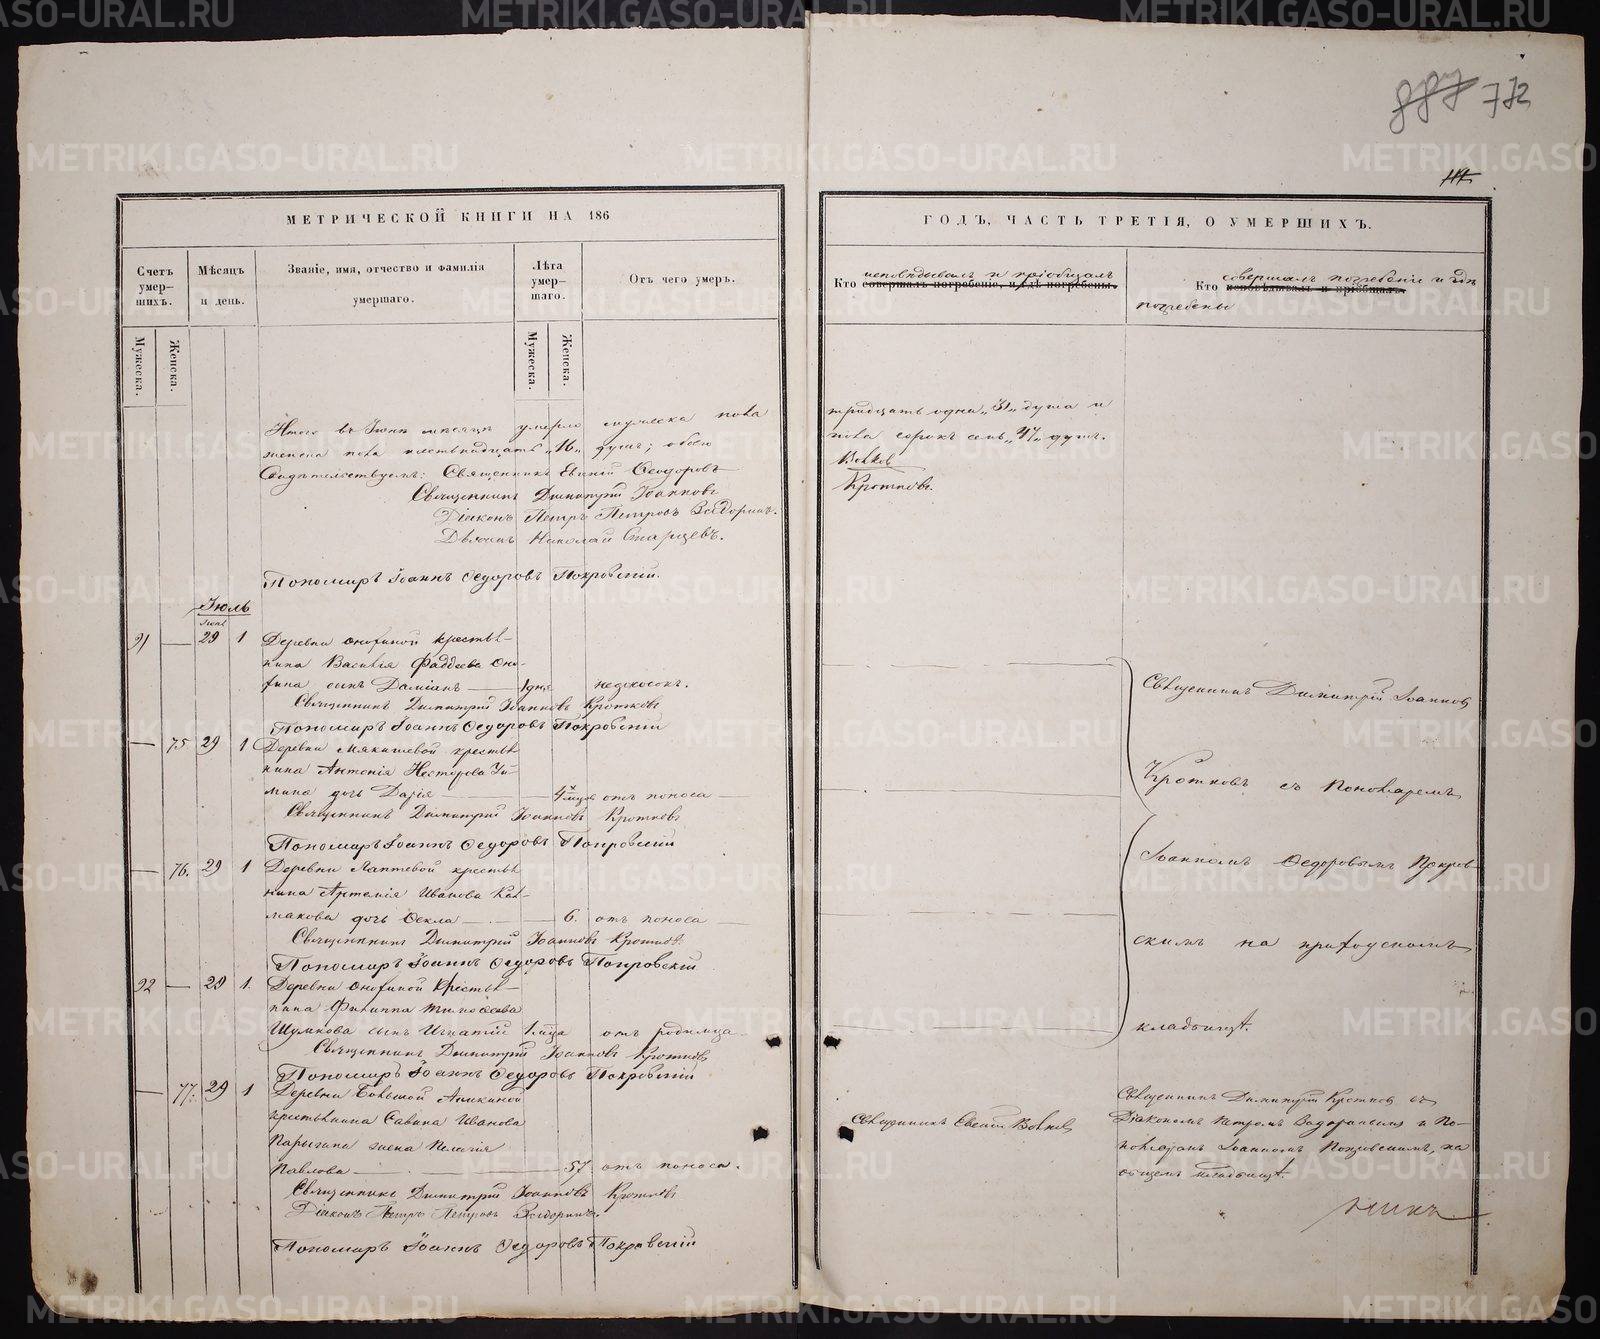 772
МЕТРИЧЕСКОЙ КНИГИ НА 186
Счетъ умер-шихъ.
Мѣсяцъ и день.
Званіе, имя, отчество и фамилія умершаго.
Лѣта умер-шаго.
Отъ чего умеръ.
Мужеска.
Женска.
Мужеска.
Женска.
Итого въ Іюнѣ мѣсяцѣ умерло мужеска пола
женска пола шестьнадцать „16„ душъ; обоего
Свидѣтельствуемъ: Священникъ Евгеній Ѳеодоровъ
Священникъ Димитрій Іоанновъ
Діаконъ Петръ Петровъ
Дьячекъ Николай Старцевъ.
Пономарь Іоаннъ Ѳедоровъ Покровскій.
Іюль
Іюня
91 — 29 1 Деревни Онохиной кресть-
янина Василія Фаддеева Оно-
хина сынъ Даміанъ — 1 дня недоносокъ.
Священникъ Димитрій Іоанновъ Кротковъ
Пономарь Іоаннъ Ѳедоровъ Покровскій
— 75 29 1 Деревни Мякишевой кресть-
янина Антонія Несторова
дочь Дарія — 4 мцѣ отъ поноса
Священникъ Димитрій Іоанновъ Кротковъ
Пономарь Іоаннъ Ѳедоровъ Покровскій
— 76. 29 1 Деревни Лаптевой кресть-
янина Артемія Иванова Кал-
макова дочь Ѳекла — 6. отъ поноса
Священникъ Димитрій Іоанновъ Кротковъ
Пономарь Іоаннъ Ѳедоровъ Покровскій
92 — 29 1. Деревни Онохиной Кресть-
янина Филиппа Тимоѳеева
Шумкова сынъ Игнатій 1 мца отъ родимца
Священникъ Димитрій Іоанновъ Кротковъ
Пономарь Іоаннъ Ѳедоровъ Покровскій
— 77. 29 1 Деревни Большой
крестьянина Савина Иванова
Парыгина жена Пелагія
Павлова — 57 отъ поноса.
Священникъ Димитрій Іоанновъ Кротковъ
Діаконъ Петръ Петровъ
Пономарь Іоаннъ Ѳедоровъ Покровскій
ГОДЪ, ЧАСТЬ ТРЕТІЯ, О УМЕРШИХЪ.
Кто исповѣдывалъ и пріобщалъ
совершалъ погребеніе, и гдѣ погребены.
Кто совершалъ погребеніе и гдѣ
исповѣдывалъ и пріобщалъ.
погребены
тридцать одна „31„ душа и
пола сорокъ семь „47„ душъ.
Волковъ
Кротковъ.
Священникъ Димитрій Іоанновъ
Кротковъ съ Пономаремъ
Іоанномъ Ѳедоровымъ Покров-
скимъ на приходскомъ
кладбищѣ.
Священникъ Евгеній Волковъ
Священникъ Димитрій Кротковъ съ
Діакономъ Петромъ и По-
номаремъ Іоанномъ Покровскимъ, на
общемъ кладбищѣ.
METRIKI.GASO-URAL.RU